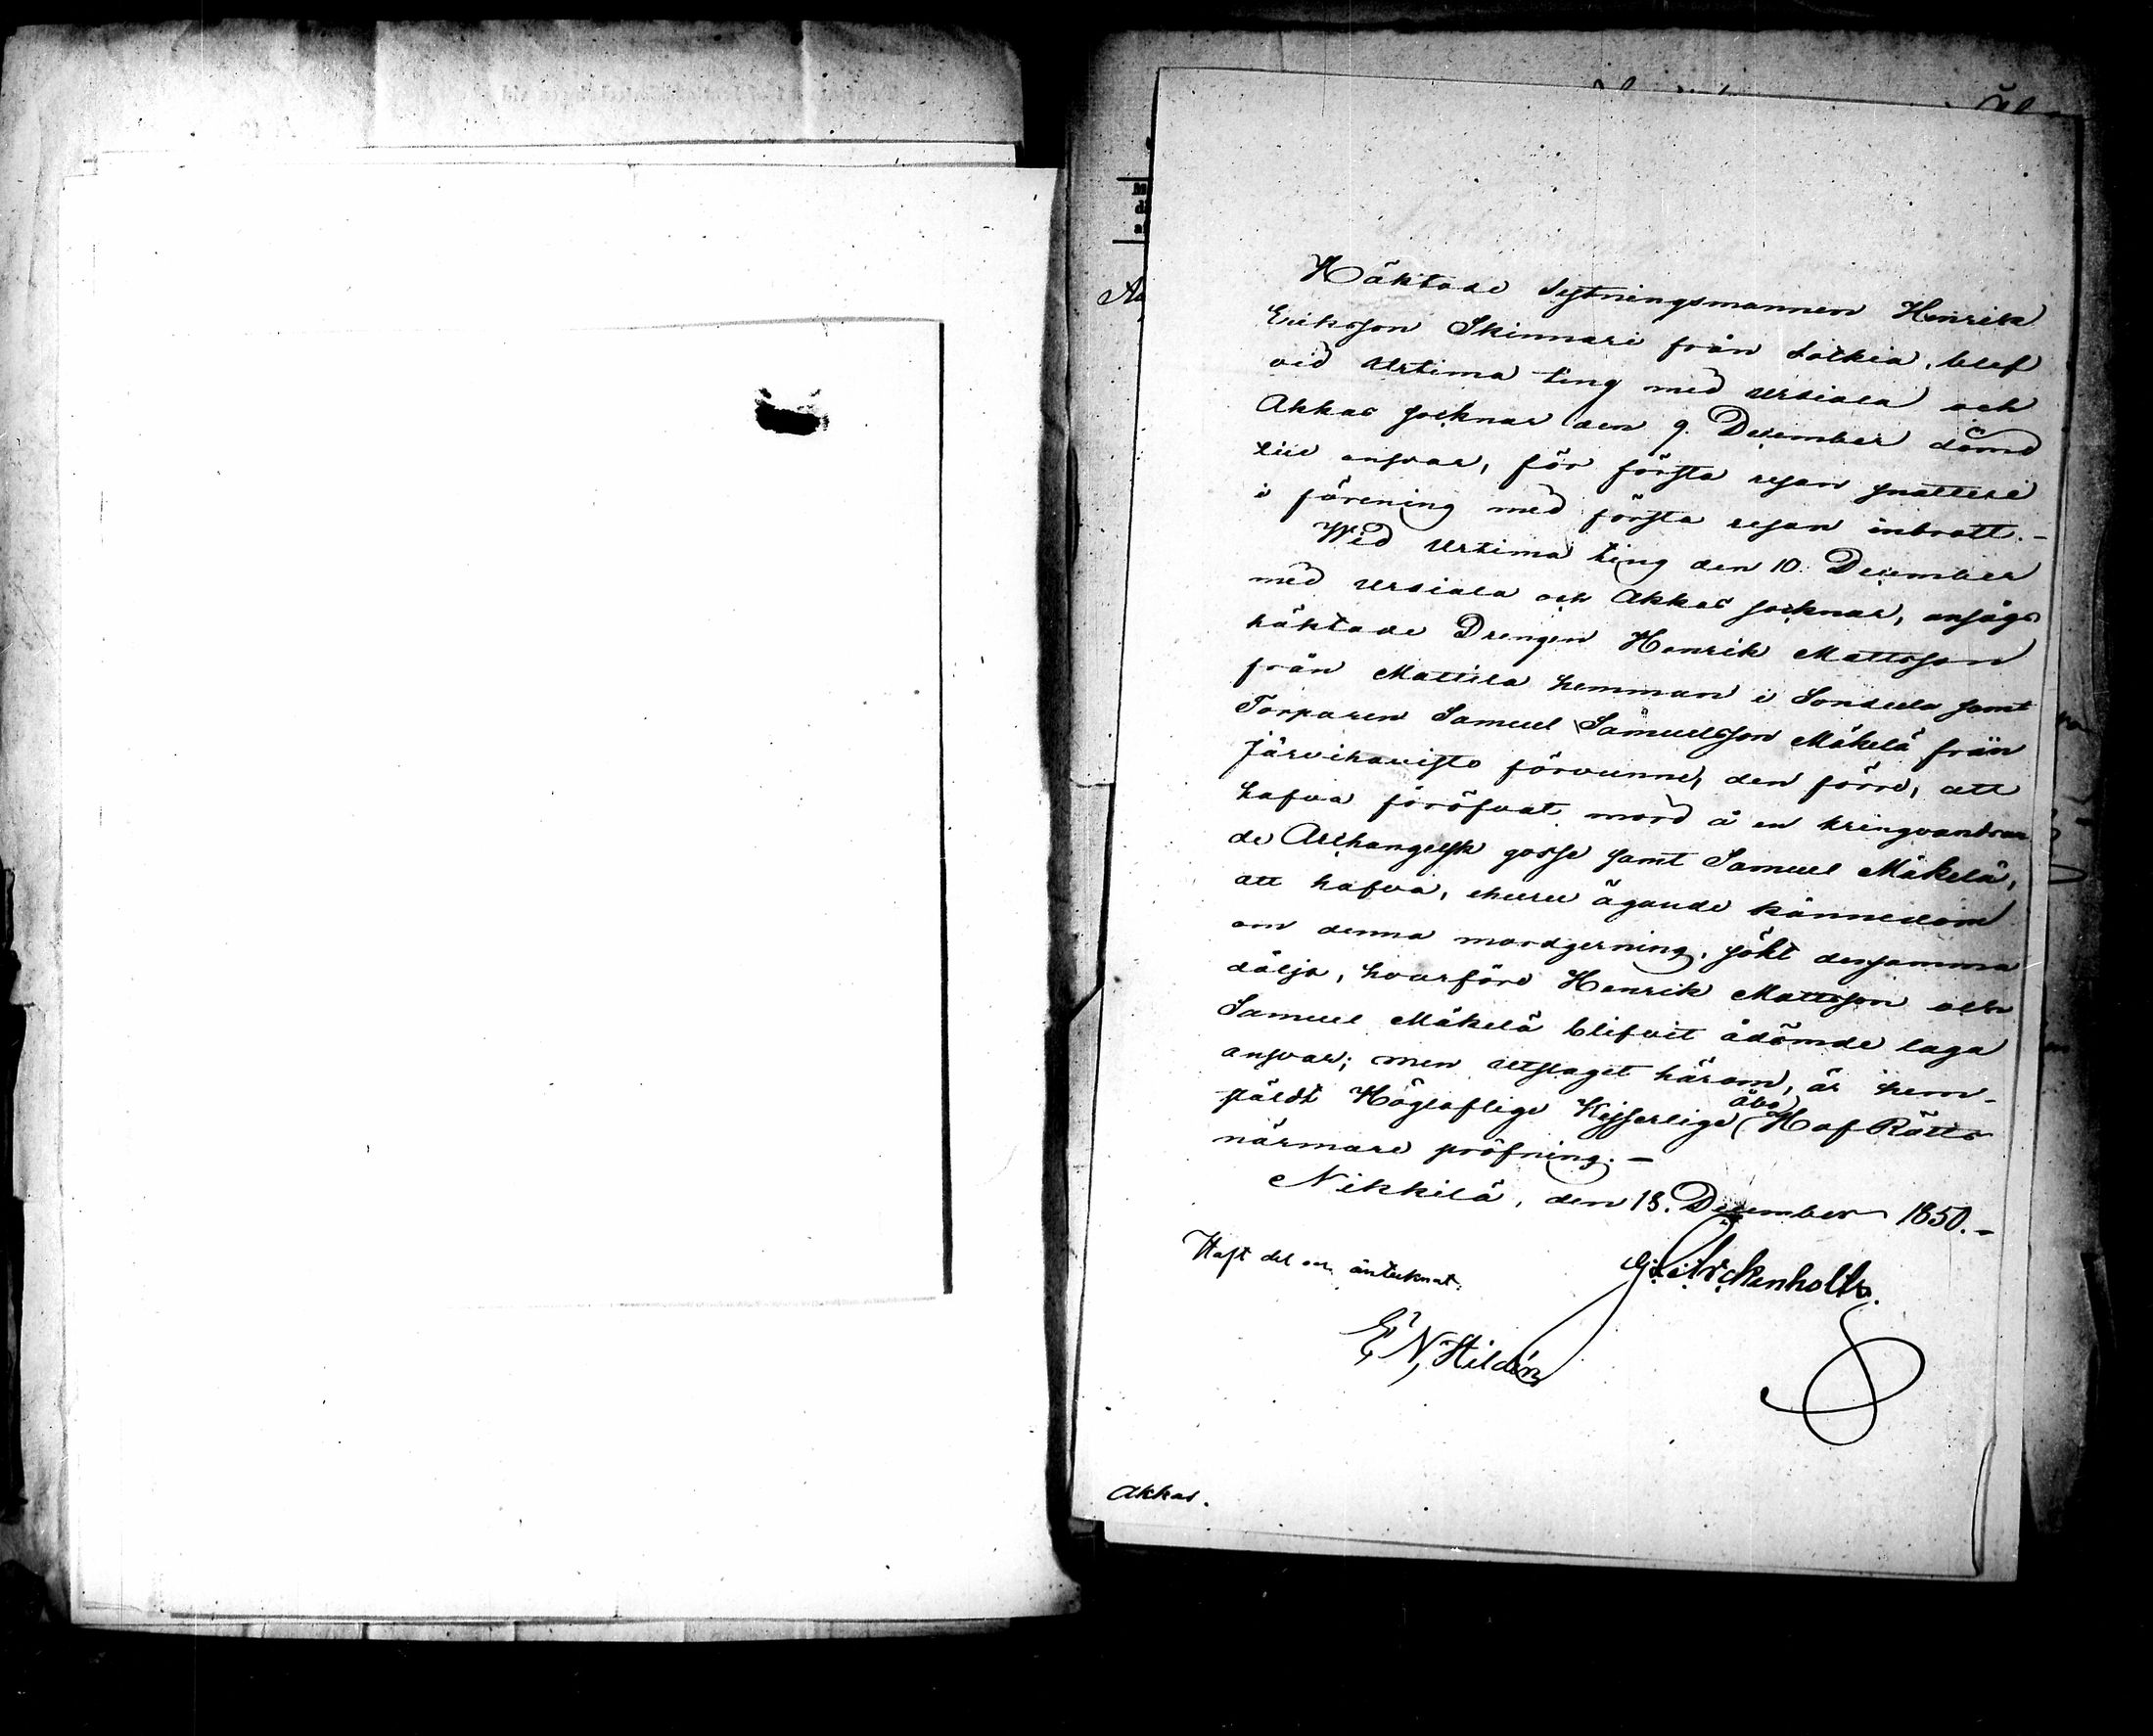 Häktade Sytningsmannen Henrik
Eriksson Skinnari från Sotkia, blef
vid Urtima ting med Urdiala och
Akkas socknar den 9. December dömd
till ansvar, för första resan snatteri
i förening med första resan inbrott.-
Wid Urtima ting den 10. December
med Urdiala och Akkas socknar, ansågs
häktade Drengen Henrik Mattsson
från Mattila hemman i Sontula samt
Torparen Samuel Samuelsson Mäkelä från
Järvihavisto förvunne, den förre, att
hafva föröfvat mord å en kringvandran
de Archangelsk gosse samt Samuel Mäkelä,
att hafva, ehuru ägande kännedom
om denna mordgerning, sökt densamma
dölja, hvarföre Henrik Mattsson och
Samuel Mäkelä blifvit ådömde laga
ansvar; men utslaget härom, är hem-
stäldt Högloflige Kejserlige Åbo Hof Rätts
närmare pröfning.-
Nikkilä, den 18. December 1850.-
G. Arckenholtz.
Haft del och antecknat.
E N Hildén
Akkas.